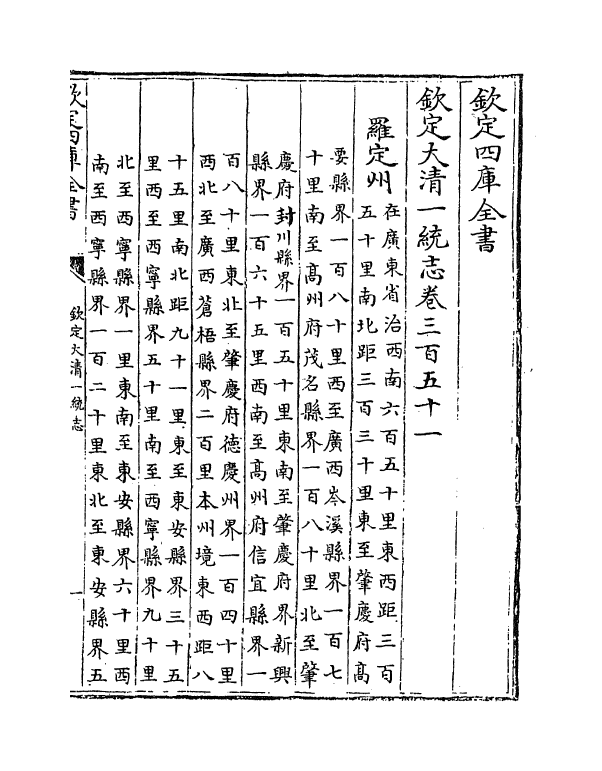 欽定四庫全書
欽定大清一統志卷三百五十一
羅定州
在廣東省治西南六百五十里東西距三百
五十里南北距三百三十里東至肇慶府高
要縣界一百八十里西至廣西岑溪縣界一百七
十里南至高州府茂名縣界一百八十里北至肇
慶府封川縣界一百五十里東南至肇慶府界新興
縣界一百六十五里西南至高州府信宜縣界一
百八十里東北至肇慶府德慶州界一百四十里
西北至廣西蒼梧縣界二百里本州境東西距八
十五里南北距九十一里東至東安縣界三十五
里西至西寧縣界五十里南至西寧縣界九十里
北至西寧縣界一里東南至東安縣界六十里西
南至西寧縣界一百二十里東北至東安縣界五
欽定四庫全書
欽定大清一統志
一